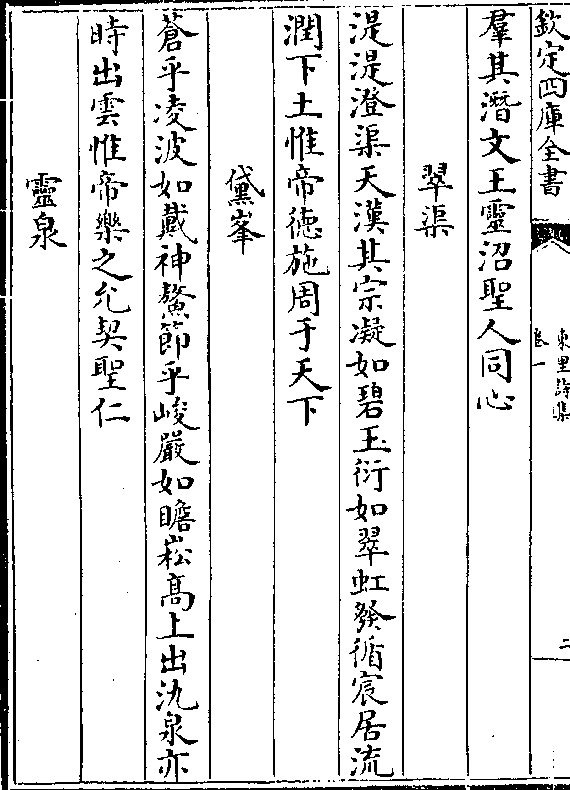 欽定四庫全書
東里詩集
卷一
二
羣其潛文王靈沼聖人同心
翠渠
湜湜澄渠天漢其宗凝如碧玉衍如翠虹發循宸居流
潤下土惟帝德施周于天下
黛峯
蒼乎凌波如戴神鰲節乎峻嚴如瞻崧高上出氿泉亦
時出雲惟帝樂之允契聖仁
靈泉